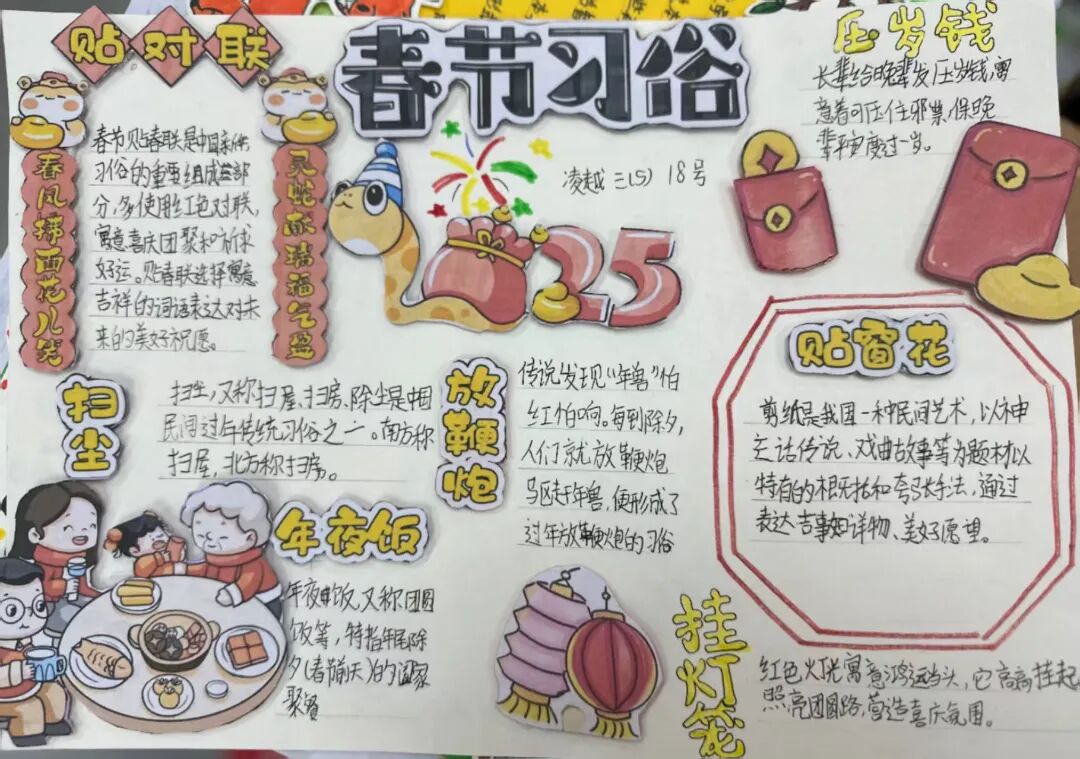 贴对联
春节习俗
压岁钱
长辈给晚辈发压岁钱,寓
意着可压住邪祟,保晚
辈平安度过一岁。
春风拂面花儿笑
春节贴春联是中国
习俗的重要组成部
分,多使用红色对联,
寓意喜庆团聚和祈求
好运。贴春联选择寓意
吉祥的词语表达对未
来的美好祝愿。
灵蛇献瑞福气盈
凌越 三(5) 18号
25
扫尘
扫尘,又称扫屋、扫房、除尘是中国
民间过年传统习俗之一。南方称
扫屋,北方称扫房。
放鞭炮
传说发现“年兽”怕
红怕响。每到除夕,
人们就放鞭炮
马区赶年兽,便形成了
过年放鞭炮的习俗
贴窗花
剪纸是我国一种民间艺术,以神
话传说、戏曲故事等为题材以
特有的概括和夸张手法,通过
表达吉事祥物、美好愿望。
年夜饭
年夜饭,又称团圆
饭等,特指年尾除
夕(春节前一天)的阖家
聚餐
挂灯笼
红色火光寓意鸿运当头,它高高挂起,
照亮团圆路,营造喜庆氛围。